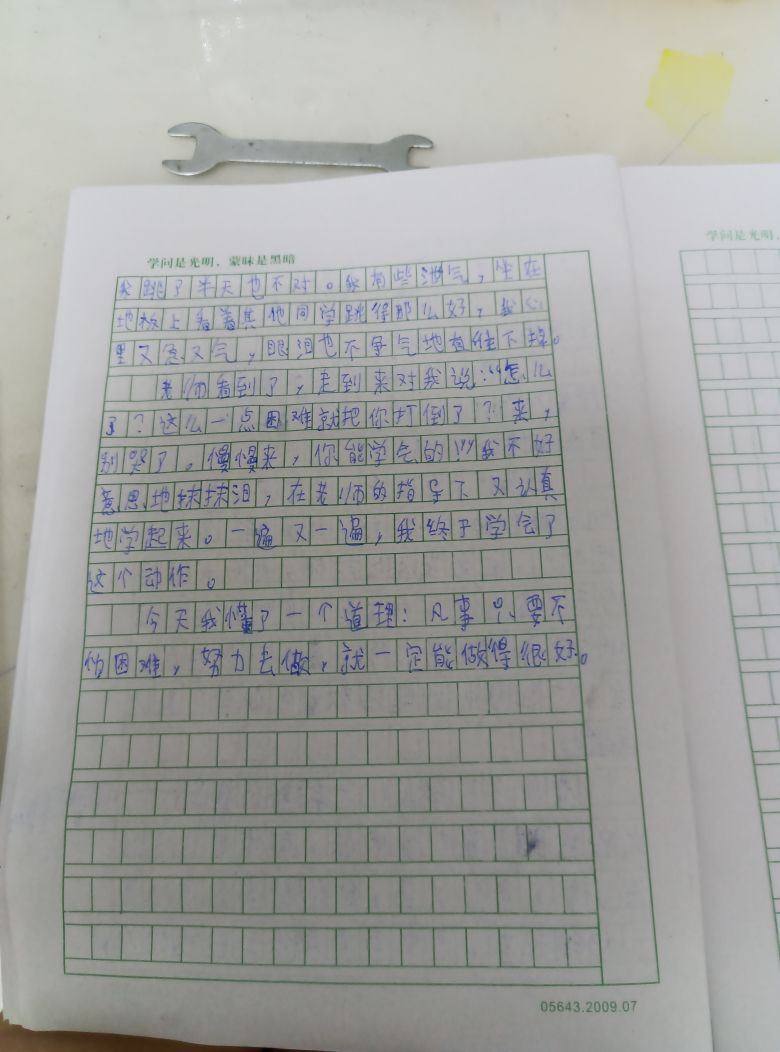 学问是光明，蒙昧是黑暗
我跳了半天也不对。我有些泄气，坐在
地板上看着其他同学跳得那么好，我心
里又急又气，眼泪也不争气地直往下掉。
老师看到了，走到来对我说：“怎么
了？这么一点困难就把你打倒了？来，
别哭了。慢慢来，你能学气的!”我不好
意思地抹抹泪，在老师的指导下又认真
地学起来。一遍又一遍，我终于学会了
这个动作。
今天我懂了一个道理：凡事只要不
怕困难，努力去做，就一定能做得很好。
05643.2009.07
学问是光明，